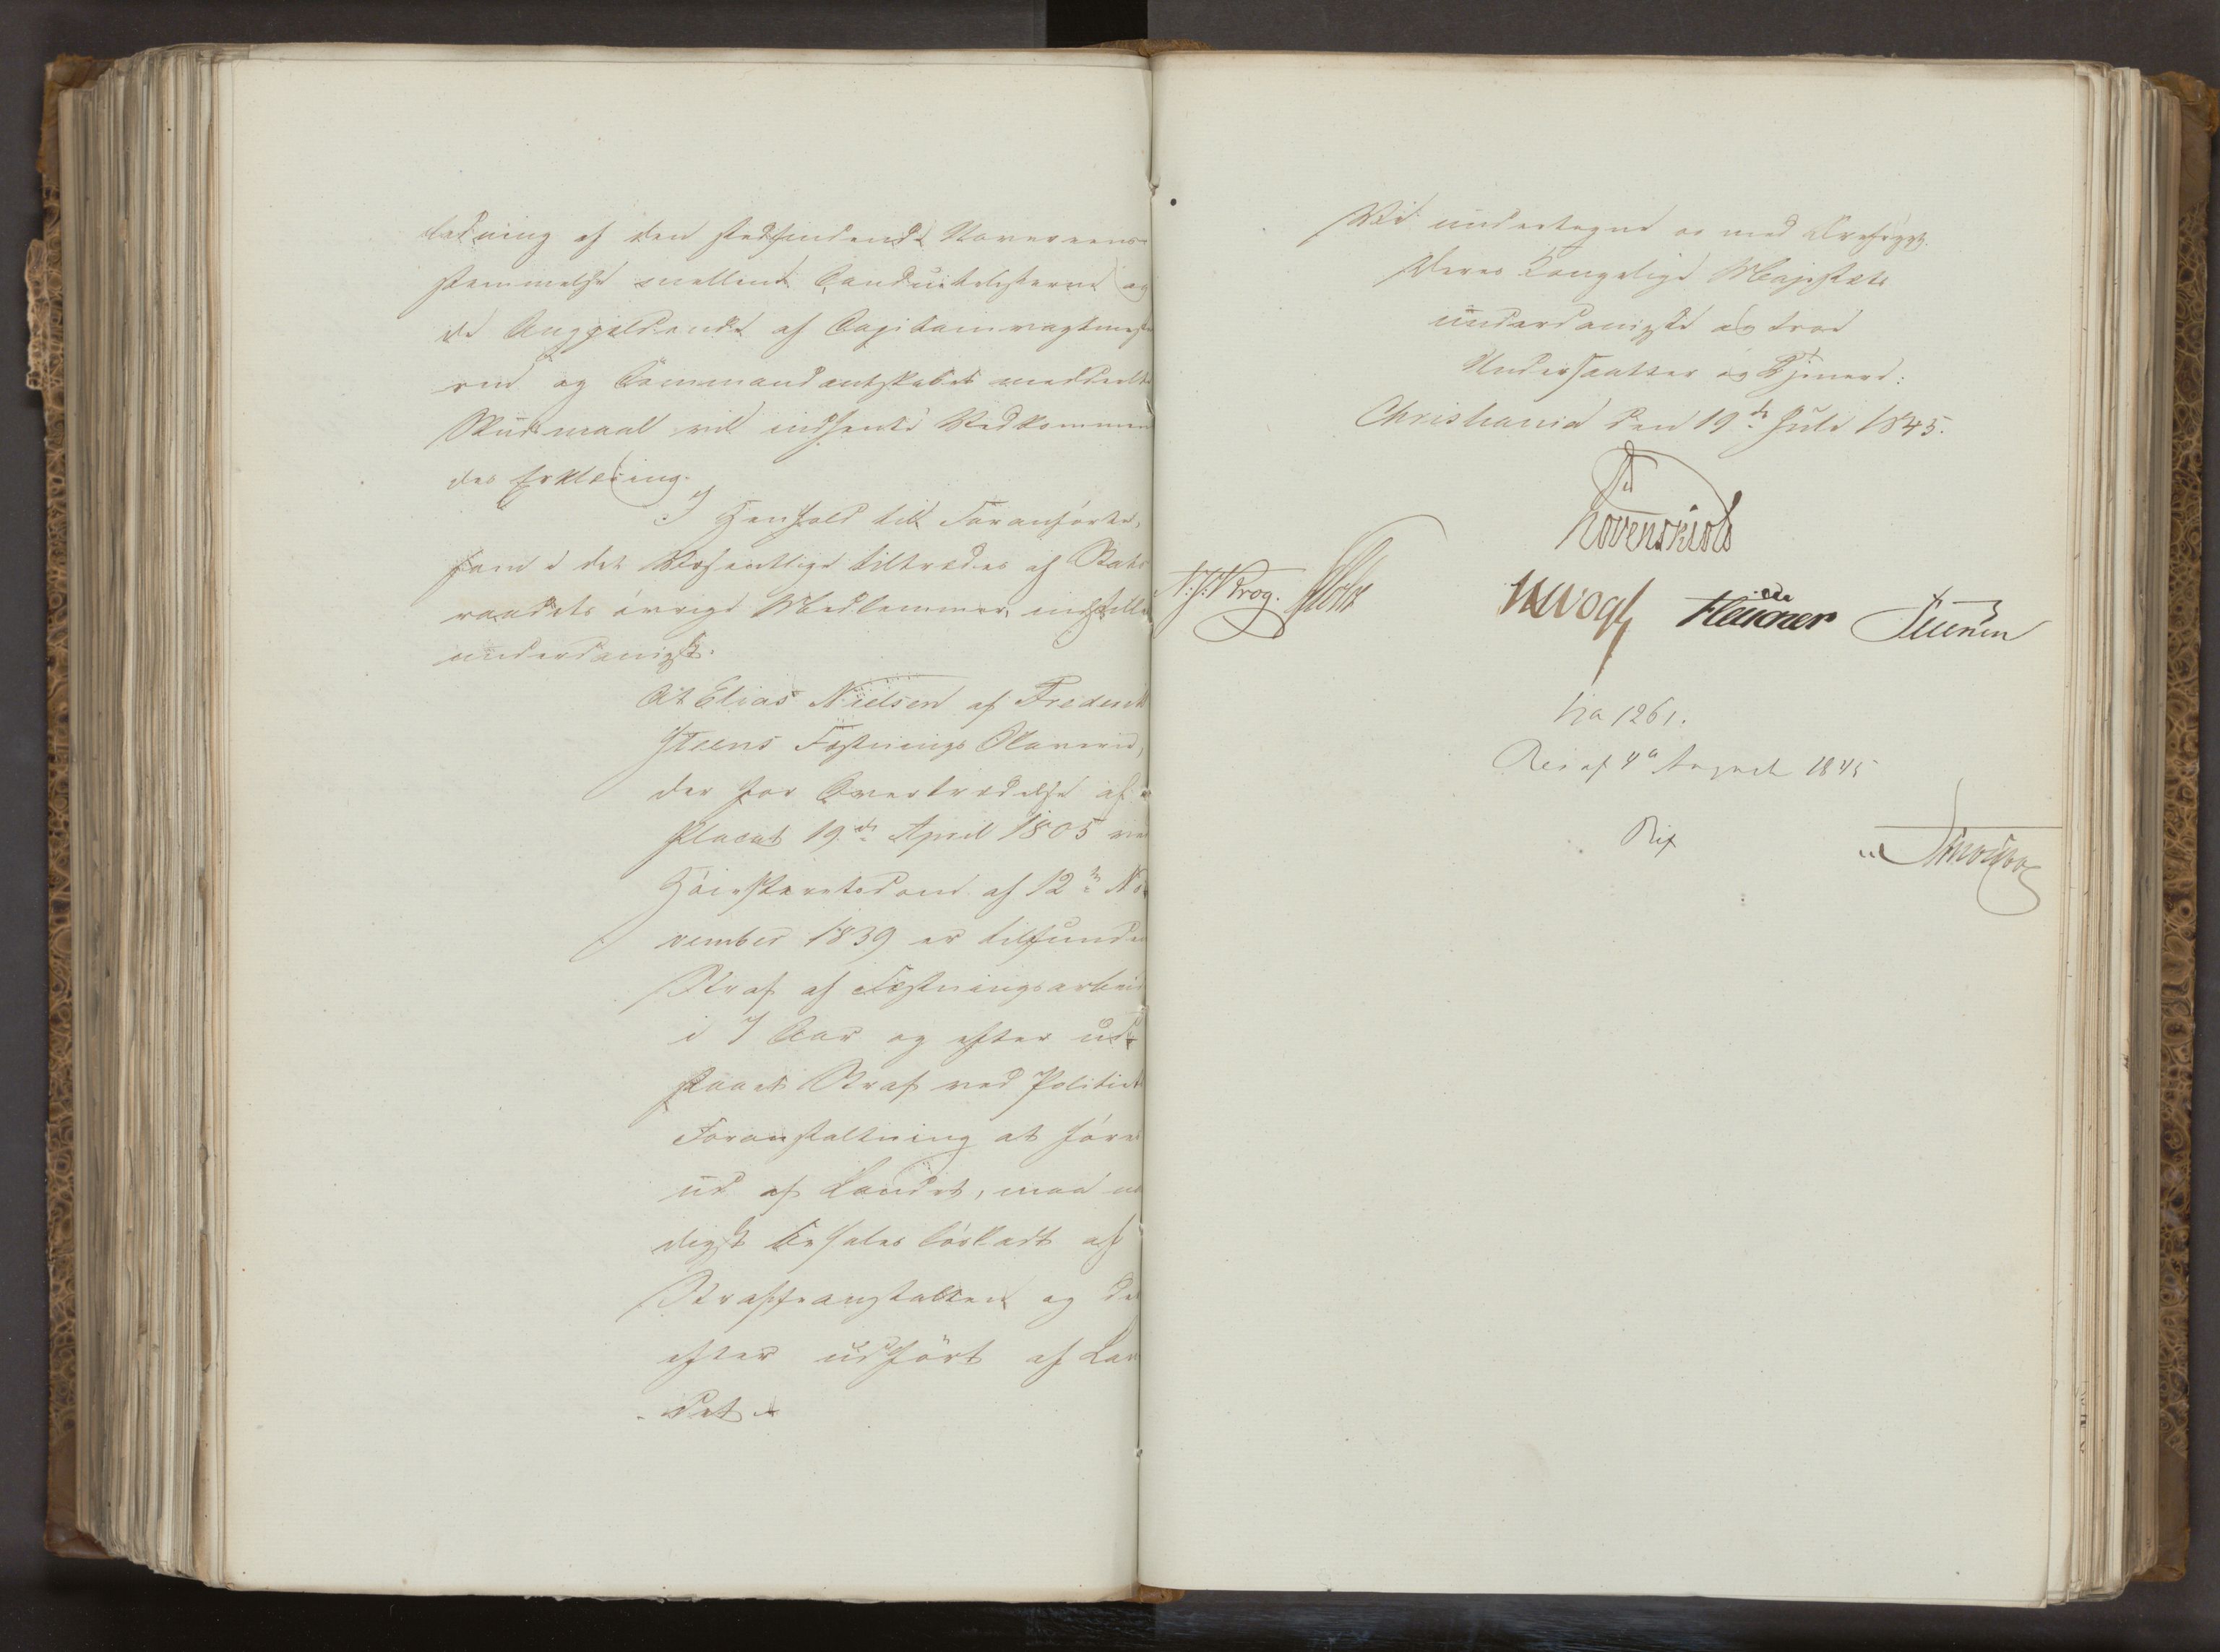 ledning af den stedfindende Uovereens-
stemmelse mellem Conduitelisterne og
de Angjeldende af Capitainvagtmeste
ren og Commandantskabet meddeelte
Skudsmaal vil indhente Vedkommen
des Erklæring.
I Henhold til Foranførte,
som i det Væsentlige tiltrædes af Stats
raadets øvrige Medlemmer, indstilles
underdanigst:
At Elias Nielsen af Frederik
steens Fæstnings Slaverie,
der for Overtrædelse af
Placat 19de April 1805 ved
Høiesteretsdom af 12te No
vember 1839 er tilfunden
Straf af Fæstningsarbeid
i 7 Aar og efter ud-
staaet Straf ved Politiets
Foranstaltning at føres
ud af Landet, maa naa
digst befales løsladt af
Straffeanstalten og der
efter udført af Lan
det.
Vi undertegne os med Ærefrygt.
Deres Kongelige Majestæts
underdanigste og troe
Undersaatter og Tjenere:
Christiania den 19de Juli 1845.
Løvenskiold
N. J. Krog. Holst Vogt Fleischer Petersen
No 1261.
Res. af 4de August 1845